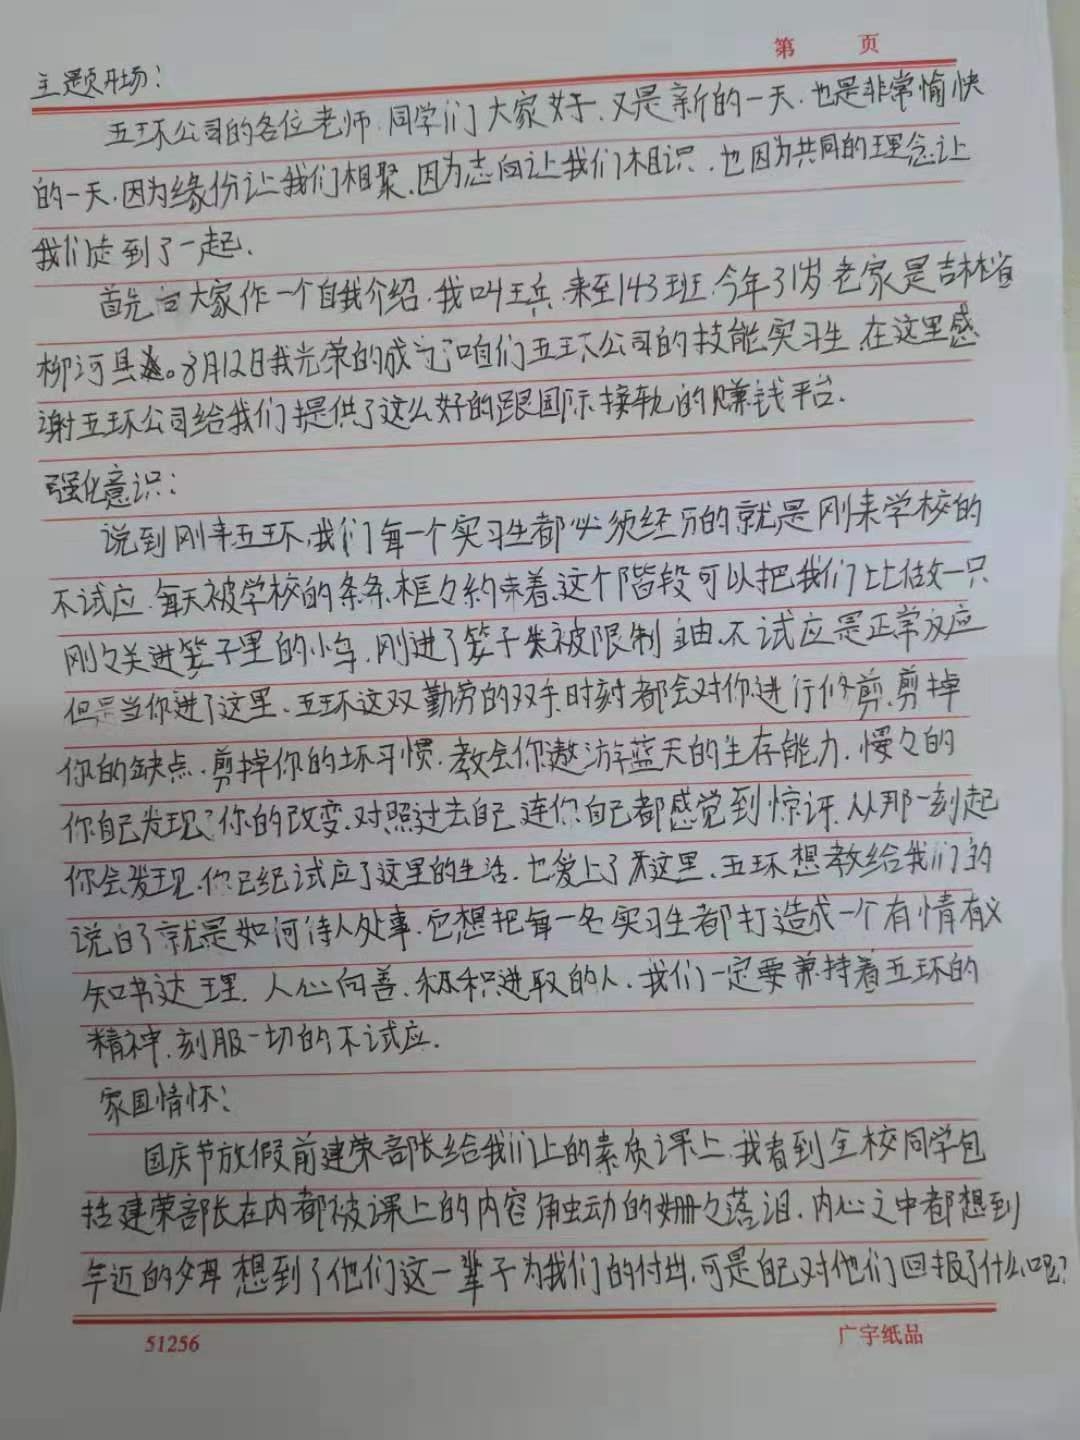 第 页
主题开场：
五环公司的各位老师.同学们大家好.又是新的一天.也是非常愉快
的一天.因为缘份让我们相聚.因为志向让我们相识.也因为共同的理念让
我们走到了一起.
首先向大家作一个自我介绍.我叫王兵.来至143班.今年31岁老家是吉林省
柳河县。8月12日我光荣的成为了咱们五环公司的技能实习生.在这里感
谢五环公司给我们提供了这么好的跟国际接轨的赚钱平台.
强化意识：
说到刚来五环,我们每一个实习生都必须经历的就是刚来学校的
不试应.每天被学校的条条框々约束着.这个阶段可以把我们比做一只
刚々关进笼子里的小鸟.刚进了笼子失被限制自由.不试应是正常反应
但是当你进了这里.五环这双勤劳的双手时刻都会对你进行修剪.剪掉
你的缺点.剪掉你的坏习惯.教会你遨游蓝天的生存能力.慢々的
你自己发现了你的改变.对照过去自己连你自己都感觉到惊讶.从那一刻起
你会发现.你已经试应了这里的生活.也爱上了这里.五环想教给我们的
说白了就是如何待人处事.它想把每一名实习生都打造成一个有情有义
知书达理.人心向善.积积进取的人.我们一定要秉持着五环的
精神.刻服一切的不试应.
家国情怀：
国庆节放假前建荣部长给我们上的素质课上.我看到全校同学包
括建荣部长在内都被课上的内容触动的姗々落泪.内心之中都想到
年迈的父母想到了他们这一辈子为我们的付出.可是自己对他们回报了什么呢?
51256 广宇纸品